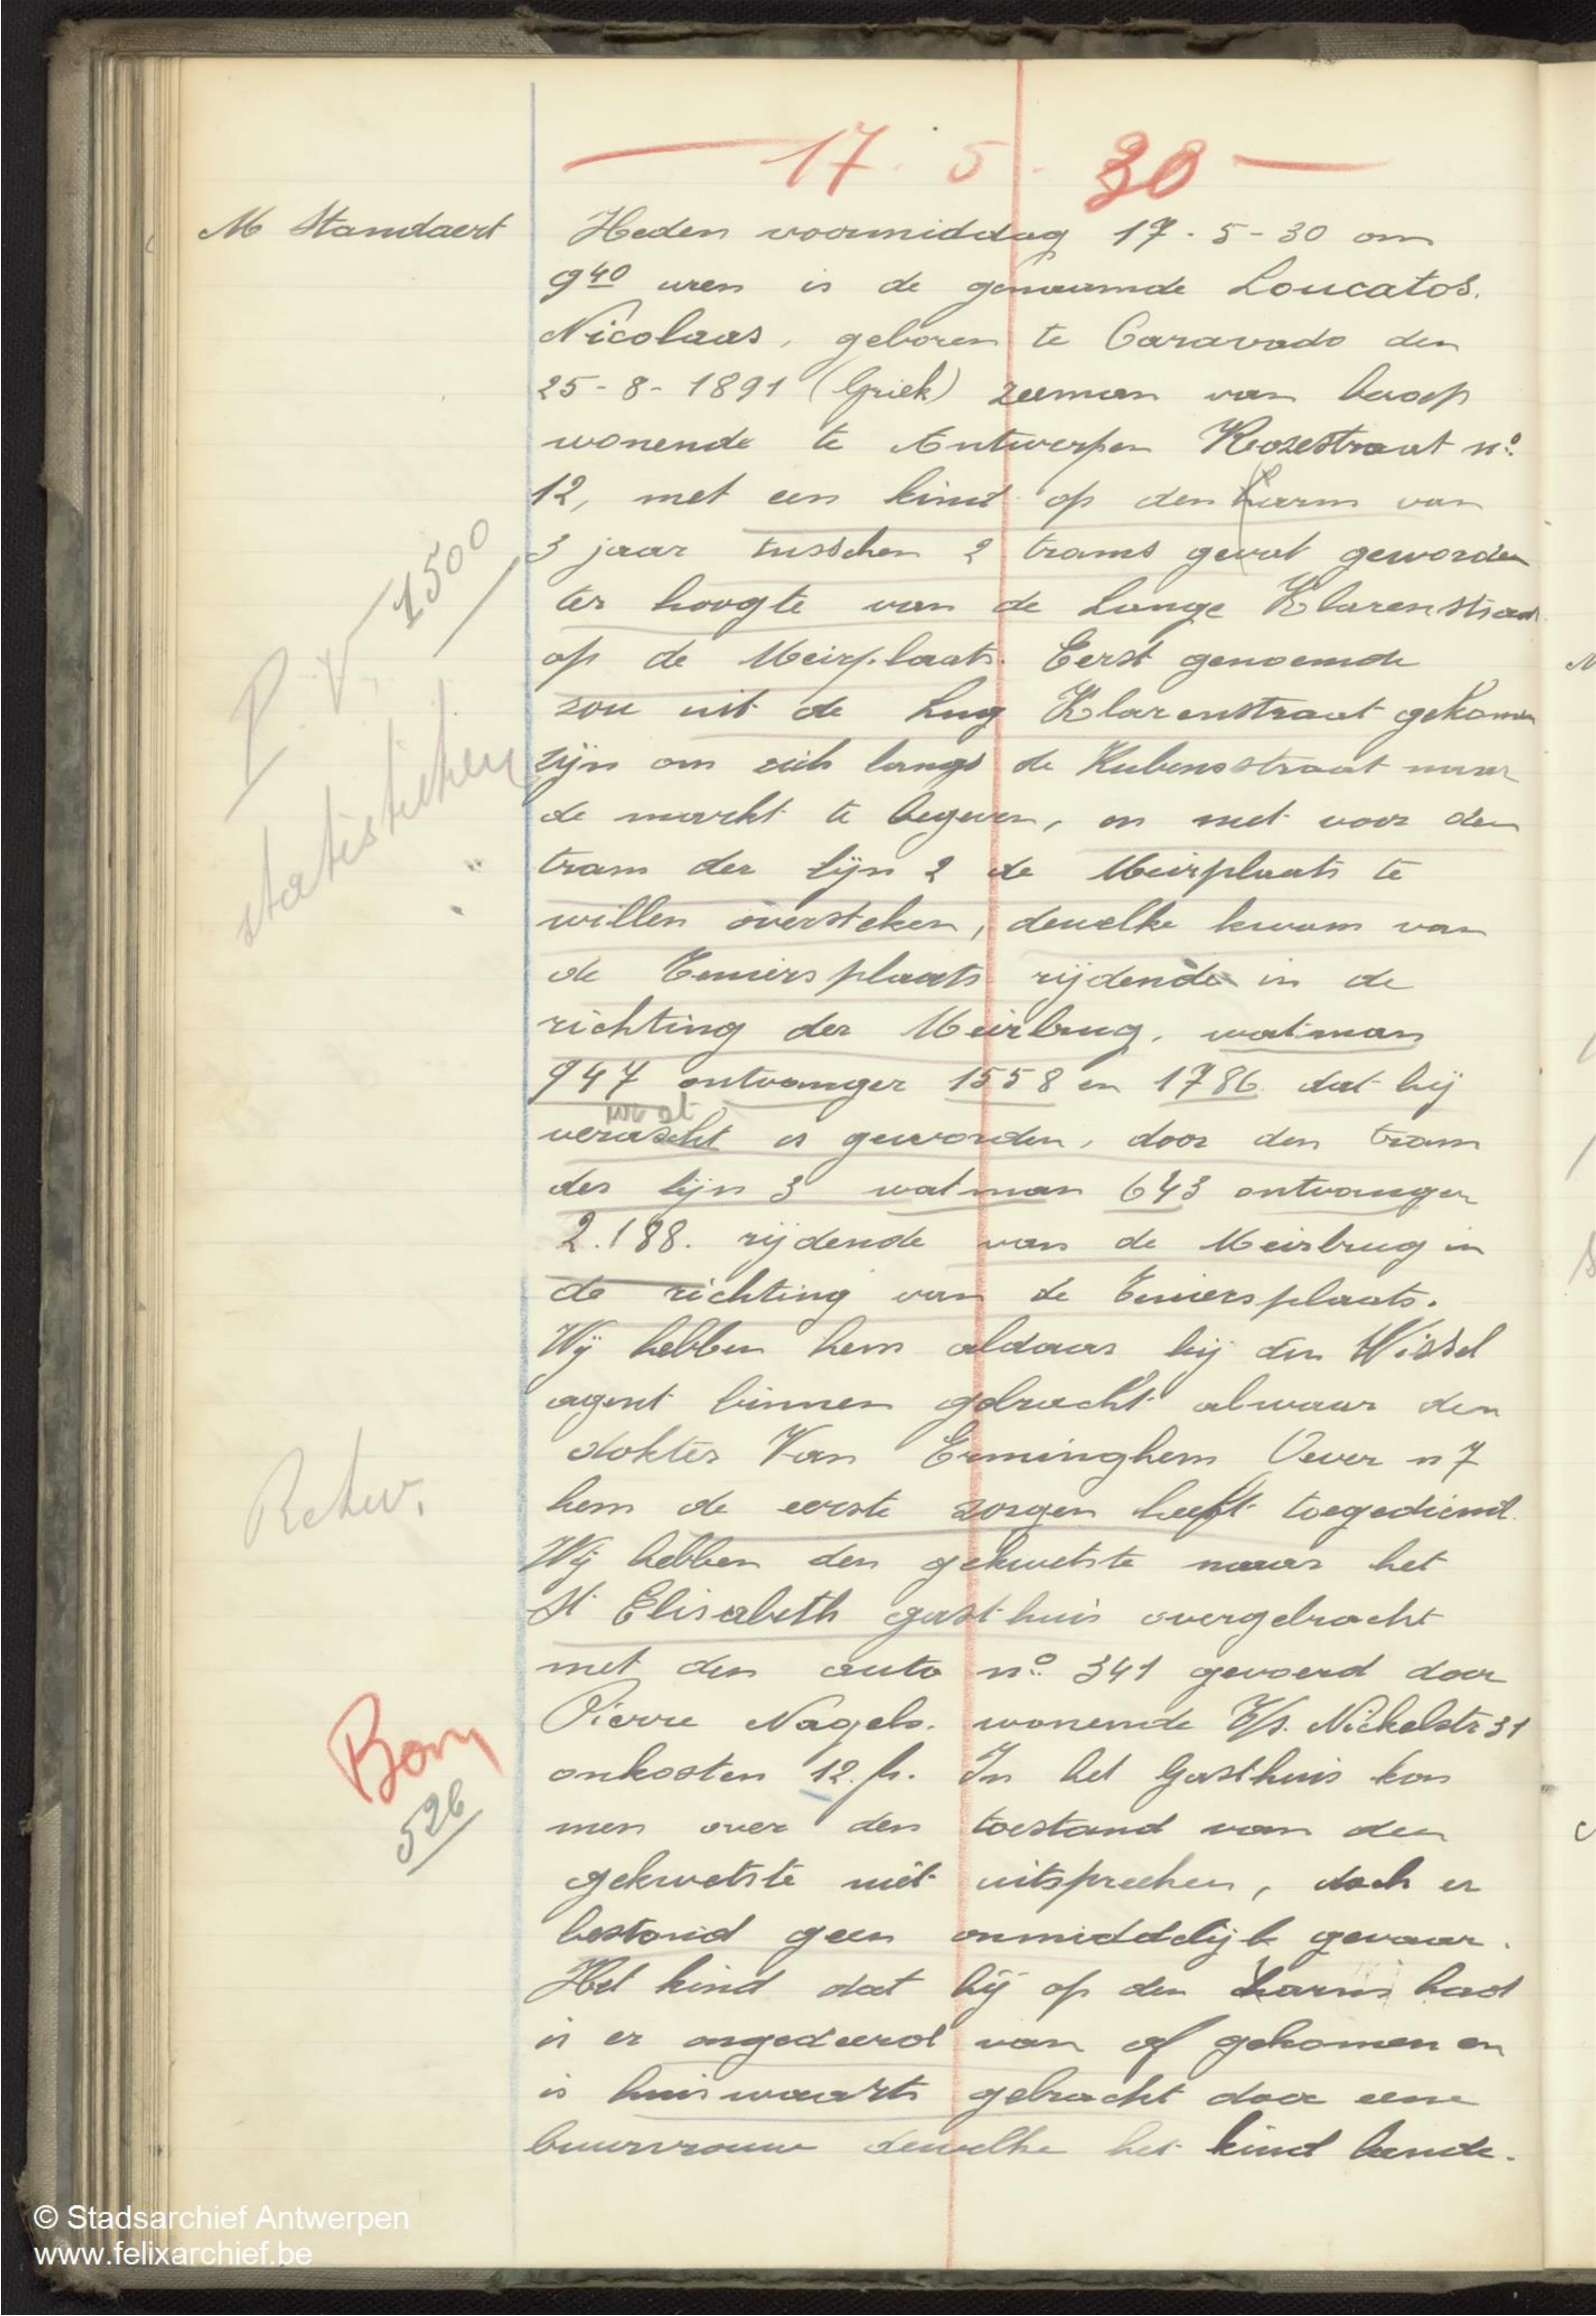 17 . 5 . 30
M Standaert
Heden voormiddag 17 . 5 - 30 om
9 40 uren is de genaamde Loucatos.
Nicolaas, geboren te Caravado den
25 - 8 - 1891 (Griek) zeeman van beroep
wonende te Antwerpen Rozestraat nº
12, met een kind op den harm van
3 jaar tusschen 2 trams gevat geworden
ter hoogte van de Lange Klarenstraat
op de Meirplaats. Eerst genoemde
zou uit de Lng Klarenstraat gekomen
zijn om zich langs de Rubensstraat naar
de markt te begeven, en met voor den
tram der lijn 2 de Meirplaats te
willen oversteken, dewelke kwam van
de Teniersplaats rijdende in de
richting der Meirbrug, watman
947 ontvanger 1558 en 1786 dat hij
verrascht is geworden, door den tram
der lijn 3 watman 643 ontvanger
2.188. rijdende van de Meirbrug in
de richting van de Teniersplaats.
Wij hebben hem aldaar bij den Wissel
agent binnen gebracht alwaar den
dokter Van Erminghem Oever n 7
hem de eerste zorgen heeft toegediend.
Wij hebben den gekwetste naar het
St Elisabeth gasthuis overgebracht
met den auto nº 341 gevoerd door
Pierre Nagels. wonende B/s. Nickelstr 31
onkosten 12. fr. In het Gasthuis kon
men over den toestand van den
gekwetste niet uitspreken, doch er
bestond geen onmiddelijk gevaar.
Het kind dat hij op den harm had
is er ongedeerd van af gekomen en
is huiswaarts gebracht door eene
buurvrouw dewelke het kind kende.
P.V. 1500
statistieken
Bon
526
© Stadsarchief Antwerpen
www.felixarchief.be